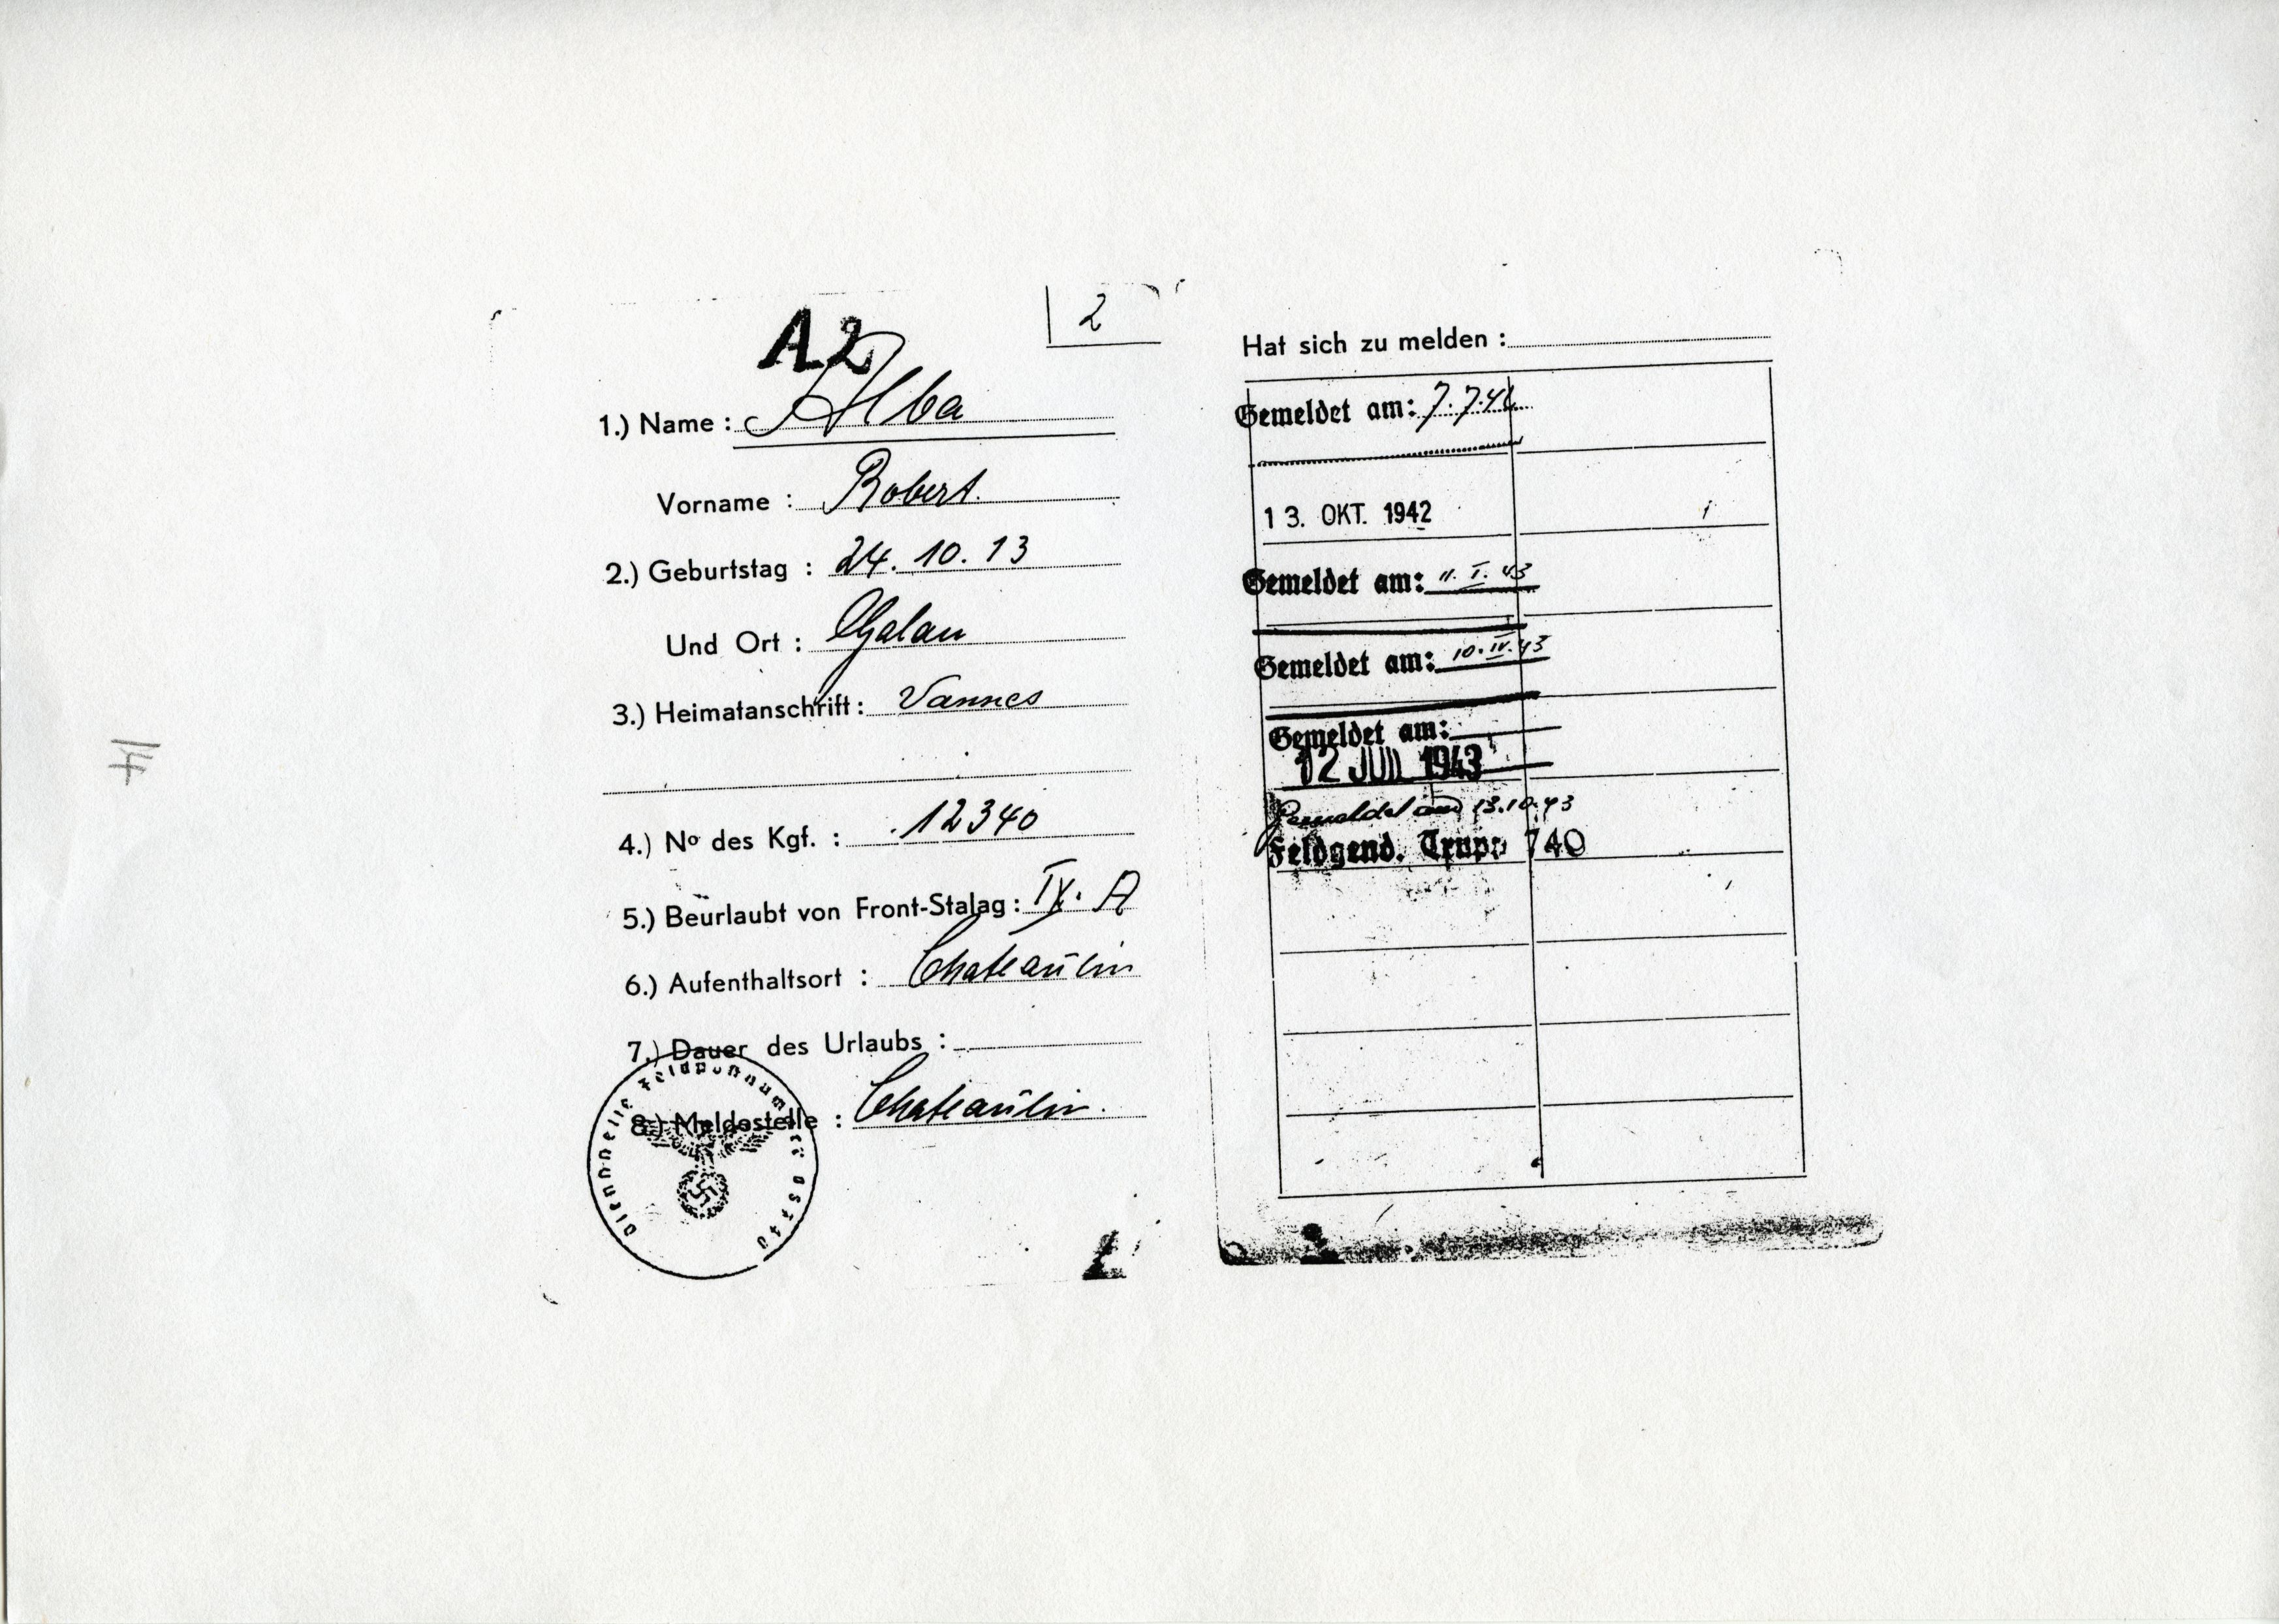 A2
2
1.) Name : Alba
Vorname : Robert.
2.) Geburtstag : 24. 10. 13
Und Ort : Galan
3.) Heimatanschrift : Vannes
4.) Nº des Kgf. : 12340
5.) Beurlaubt von Front-Stalag : IX. A
6.) Aufenthaltsort : Chateaulin
7.) Dauer des Urlaubs :
8.) Meldestelle : Chateaulin.
Dienststelle Feldpostnummer
Hat sich zu melden :
Gemeldet am: 7.7.42
13. OKT. 1942
Gemeldet am: 11. I. 43
Gemeldet am: 10. IV. 43
Gemeldet am:
12 JULI 1943
Gemeldet am 13.10.43
Feldgend. Trupp 740